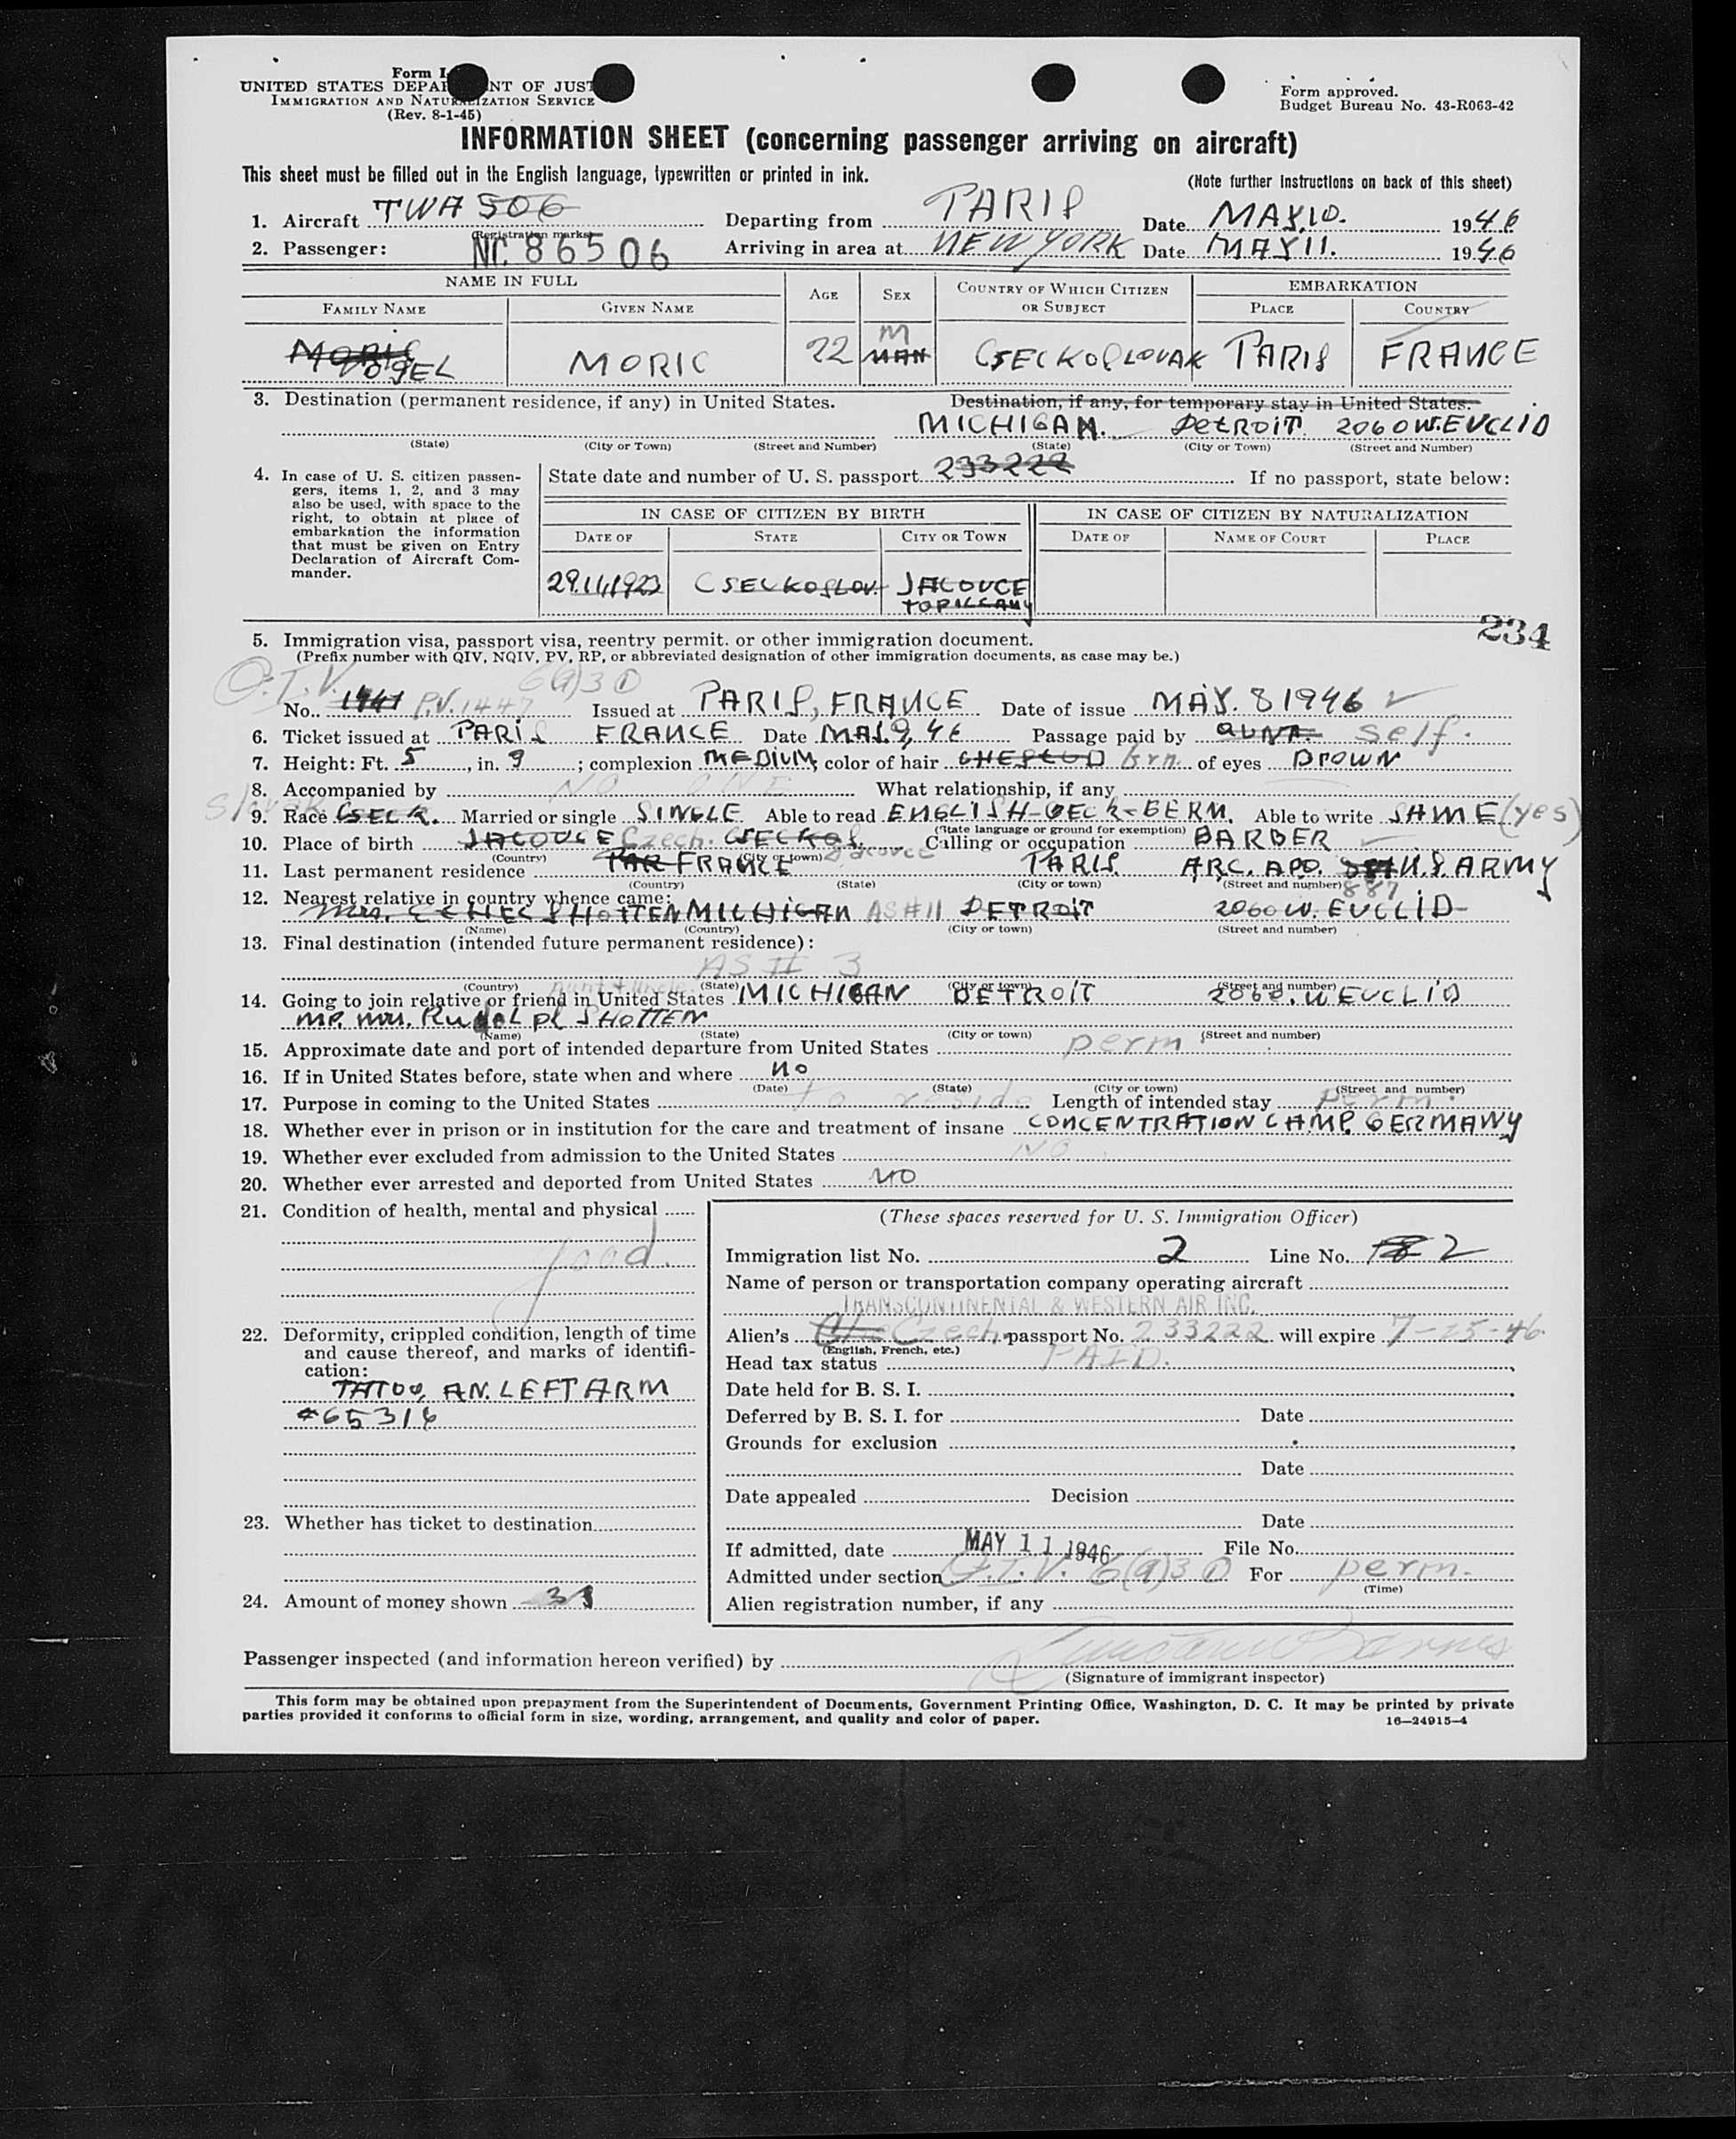 Form I
UNITED STATES DEPA NT OF JUST
IMMIGRATION AND NATURALIZATION SERVICE
(Rev. 8-1-45)
Form approved.
Budget Bureau No. 43-R063-42
INFORMATION SHEET (concerning passenger arriving on aircraft)
This sheet must be filled out in the English language, typewritten or printed in ink.
(Note further instructions on back of this sheet)
1. Aircraft TWA 506 Departing from PARIS Date MAY.10. 1946
(Registration marks)
2. Passenger: NC 86506 Arriving in area at NEW YORK Date MAY 11. 1946
NAME IN FULL AGE SEX COUNTRY OF WHICH CITIZEN OR SUBJECT EMBARKATION
FAMILY NAME GIVEN NAME PLACE COUNTRY
M
MORIC VOGEL MORIC 22 MAN CSECKOSLOVAK PARIS FRANCE
3. Destination (permanent residence, if any) in United States. Destination, if any, for temporary stay in United States.
MICHIGAN. DETROIT. 2060 W. EUCLID
(State) (City or Town) (Street and Number) (State) (City or Town) (Street and Number)
4. In case of U. S. citizen passengers, items 1, 2, and 3 may also be used, with space to the right, to obtain at place of embarkation the information that must be given on Entry Declaration of Aircraft Commander.
State date and number of U. S. passport 233222 If no passport, state below:
IN CASE OF CITIZEN BY BIRTH IN CASE OF CITIZEN BY NATURALIZATION
DATE OF STATE CITY OR TOWN DATE OF NAME OF COURT PLACE
29.11.1923 CSECKOSLOV. JACOVCE
TOPILCANY
234
5. Immigration visa, passport visa, reentry permit. or other immigration document.
(Prefix number with QIV, NQIV, PV, RP, or abbreviated designation of other immigration documents, as case may be.)
Q.I.V. 6(a)3 ①
No. 1447 P.V. 1447 Issued at PARIS, FRANCE Date of issue MAY. 8 1946
6. Ticket issued at PARIS FRANCE Date MAY.9, 46 Passage paid by self.
7. Height: Ft. 5, in. 9; complexion MEDIUM, color of hair brn. of eyes BROWN
8. Accompanied by NO ONE What relationship, if any
Slovak
9. Race CSECK. Married or single SINGLE Able to read ENGLISH-CECK-GERM. Able to write SAME (yes)
(State language or ground for exemption)
10. Place of birth JACOVCE Czech. CSECKOS. Jacovce Calling or occupation BARBER
(Country) (City or town)
11. Last permanent residence PAR FRANCE PARIS. ARC. APO. U.S. ARMY
(Country) (State) (City or town) (Street and number) 887
12. Nearest relative in country whence came:
Mrs. SHOTTEN MICHIGAN AS #11 DETROIT 2060 W. EUCLID
(Name) (Country) (City or town) (Street and number)
13. Final destination (intended future permanent residence):
AS # 3
(Country) (State) (City or town) (Street and number)
aunt & uncle
14. Going to join relative or friend in United States MICHIGAN DETROIT 2060. W EUCLID
MR. MRS. RUDOLPH SHOTTEN
(Name) (State) (City or town) (Street and number)
15. Approximate date and port of intended departure from United States perm
16. If in United States before, state when and where NO
(Date) (State) (City or town) (Street and number)
17. Purpose in coming to the United States to reside Length of intended stay perm.
18. Whether ever in prison or in institution for the care and treatment of insane CONCENTRATION CAMP. GERMANY
19. Whether ever excluded from admission to the United States NO
20. Whether ever arrested and deported from United States NO
21. Condition of health, mental and physical
good.
22. Deformity, crippled condition, length of time and cause thereof, and marks of identification:
TATOO, AN. LEFT ARM
#65316
23. Whether has ticket to destination
24. Amount of money shown
(These spaces reserved for U. S. Immigration Officer)
Immigration list No. 2 Line No. 2
Name of person or transportation company operating aircraft
TRANSCONTINENTAL & WESTERN AIR INC.
Alien's Czech. passport No. 233222 will expire 7-25-46.
(English, French, etc.)
Head tax status PAID.
Date held for B. S. I.
Deferred by B. S. I. for Date
Grounds for exclusion
Date
Date appealed Decision
Date
If admitted, date MAY 11 1946 File No.
Admitted under section Q.I.V. 6(a)3 ① For perm.
(Time)
Alien registration number, if any
Passenger inspected (and information hereon verified) by
(Signature of immigrant inspector)
This form may be obtained upon prepayment from the Superintendent of Documents, Government Printing Office, Washington, D. C. It may be printed by private
parties provided it conforms to official form in size, wording, arrangement, and quality and color of paper. 16—24915-4